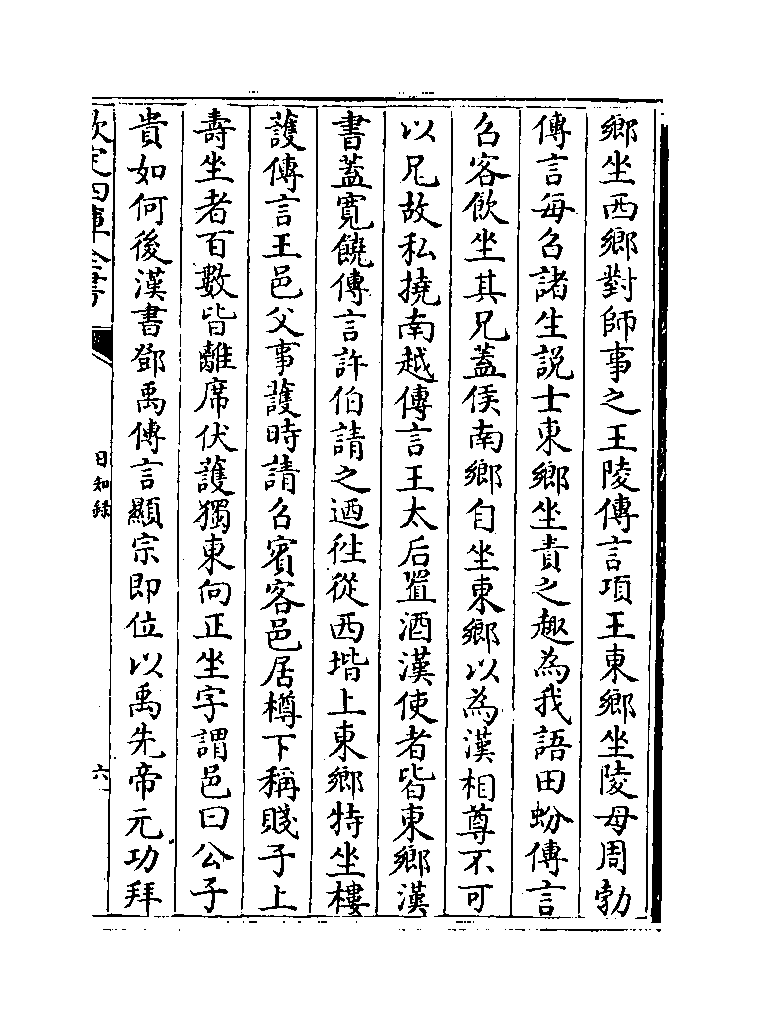 鄉坐西鄉對師事之王陵傳言項王東鄉坐陵母周勃
傳言每召諸生説士東鄉坐責之趣為我語田蚡傳言
召客飲坐其兄蓋侯南鄉自坐東鄉以為漢相尊不可
以兄故私撓南越傳言王太后置酒漢使者皆東鄉漢
書蓋寛饒傳言許伯請之迺徃從西堦上東鄉特坐樓
護傳言王邑父事護時請召賓客邑居樽下稱賤子上
壽坐者百數皆離席伏護獨東向正坐字謂邑曰公子
貴如何後漢書鄧禹傳言顯宗即位以禹先帝元功拜
欽定四庫全書
日知録
六